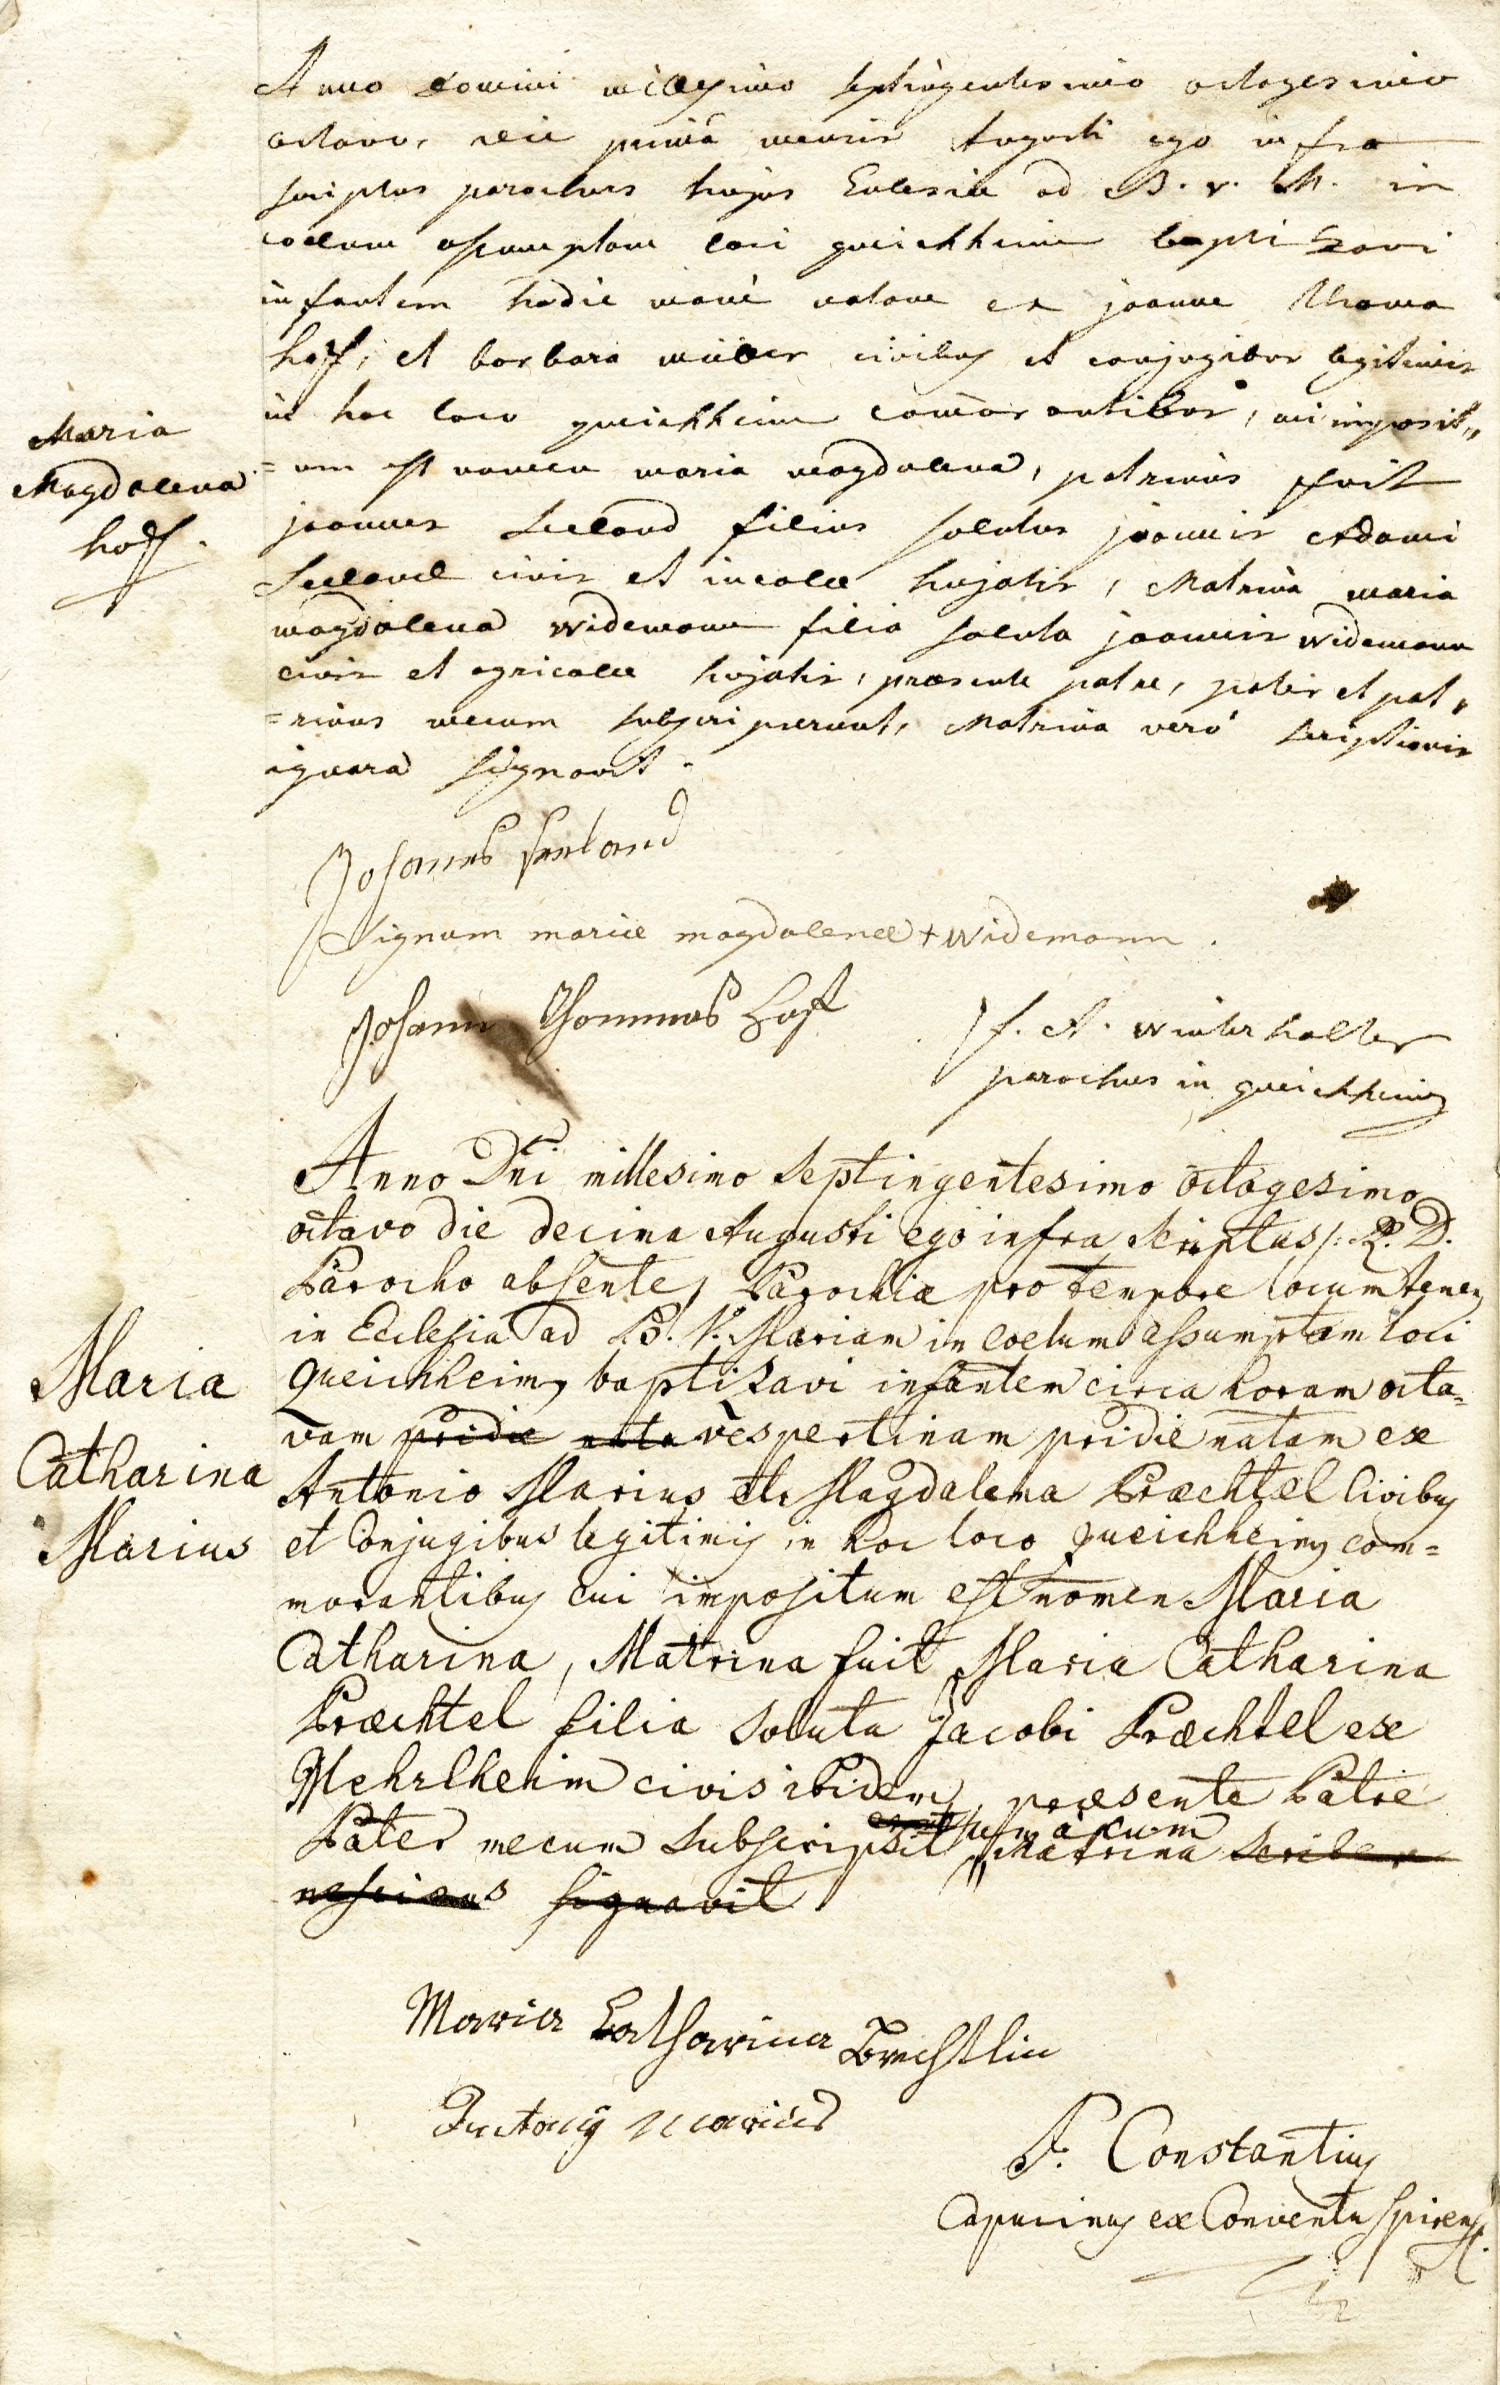 Anno domini millesimo septingentesimo octogesimo
octavo, die primâ mensis Augusti ego infra
scriptus parochus hujus Eclesiæ ad B. v. M. in
coelum assumptam loci queichheim baptizavi
infantem hodie manè natam ex joanne thoma
hoff, et barbara müller civibus et conjugibus legitimis
in hoc loco queichheim com̄orantibus, cui imposit„
=um est nomen maria magdalena, patrinus fuit
joannes Seeland filius solutus joannis Adami
Seeland civis et incolæ hujatis, Matrina maria
magdalena widemann filia soluta joannis widemann
civis et agricolæ hujatis, præsente patre, pater et pat„
=rinus mecum subscripserunt, Matrina verò scriptionis
ignara signavit.
Maria
Magdalena
hoff.
Johannes Seeland
Signum mariæ magdalenæ + widemann.
Johann Thommas Hoff
f. A. winterhalter
parochus in queichheim
Anno Dn̄i millesimo septingentesimo octogesimo
octavo die decima Augusti ego infra scriptus /: R. D.
Parocho absente, Parochiæ pro tempore locum tenens
in Ecclesia ad B. V. Mariam in coelum assumptam loci
Queichheim, baptizavi infantem circa horam octa=
vam pridie nata vespertinam pridie natam ex
Antonio Marius et Magdalena Præchtel Civibus
et Conjugibus legitimis in hoc loco queichheim com=
morantibus cui impositum est nomen Maria
Catharina, Matrina fuit Maria Catharina
Præchtel filia soluta Jacobi Præchtel ex
Mehrlheim civis ibidem, præsente Patre
Pater mecum subscripsit Matrina scribere
nescians signavit
Maria
Catharina
Marius
Maria Catharina Brechtlin
Antony Marius
P. Constantius
Capucinus ex Conventu Spirensi.